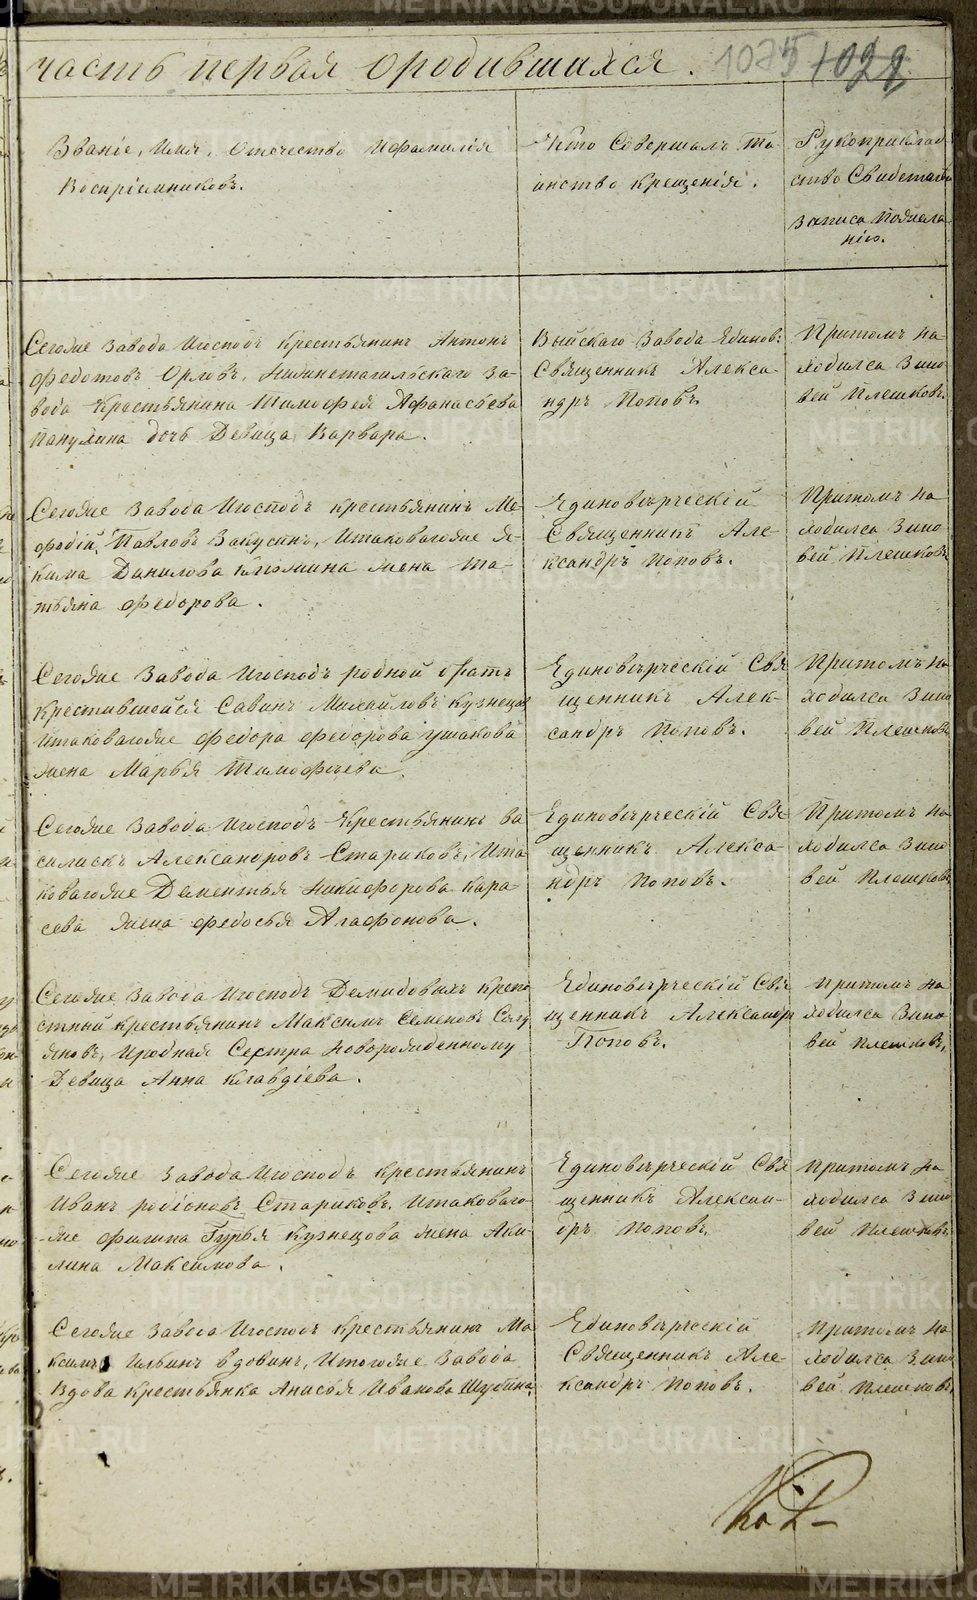 часть первая о родившихся. 1075 1022
Званіе, Имя, Отечество и Фамилія
Воспріемниковъ.
Кто Совершалъ Та-
инство Крещенія.
Рукоприклад-
ство Свидетелей
Записа по желанію.
Сегоже завода Игосподъ крестьянинъ Антонъ
Федотовъ Орловъ, Нижнетагильскаго за-
вода крестьянина Тимофея Афанасьева
дочь Девица Варвара.
Выйскаго Завода Единов:
Священникъ Алекса-
ндръ Поповъ.
Притомъ на
ходился Зино
вей Плешковъ.
Сегоже Завода Игосподъ крестьянинъ Ме-
фодій Павловъ Закусинъ, Итаковагоже Я-
кима Данилова Кузмина жена Та-
тьяна Федорова.
Единоверческій
Священникъ Але-
ксандръ Поповъ.
Притомъ на
ходился Зино
вей Плешковъ
Сегоже Завода Игосподъ родной братъ
крестившейся Савинъ Михайловъ Кузнецов
Итаковагоже Федора Федорова Ушакова
жена Марья Тимофеева.
Единоверческій Свя
щенникъ Алек-
сандръ Поповъ.
Притомъ на
ходился Зино
вей Плешковъ
Сегоже Завода Игосподъ Крестьянинъ Ва
силискъ Александровъ Стариковъ, Ита
ковагоже Дементья Никифорова Кара-
сева жена Федосья Агафонова.
Единоверческій Свя
щенникъ Алекса-
ндръ Поповъ.
Притомъ на
ходился Зино
вей Плешковъ
Сегоже Завода Игосподъ Демидовыхъ крепо
стный крестьянинъ Максимъ Семеновъ
Иродная Сестра новорожденному
Девица Анна Клавдіева.
Единоверческій Свя
щенникъ Александръ
Поповъ.
Притомъ на
ходился Зино
вей Плешковъ,
Сегоже Завода Игосподъ крестьянинъ
Иванъ Родіоновъ Стариковъ, Итаковаго-
же Филипа Гурья Кузнецова жена Аку-
лина Максимова.
Единоверческій Свя
щенникъ Алексан-
дръ Поповъ
Притомъ на
ходился Зино
вей Плешковъ
Сегоже Завода Игосподъ Крестьянинъ Ма
ксимъ Ильинъ Вдовинъ, Итогоже Завода
Вдова Крестьянка Анисья Иванова Шубина
Единоверческій
Священникъ Але-
ксандръ Поповъ.
Притомъ на
ходился Зино
вей Плешковъ
METRIKI.GASO-URAL.RU